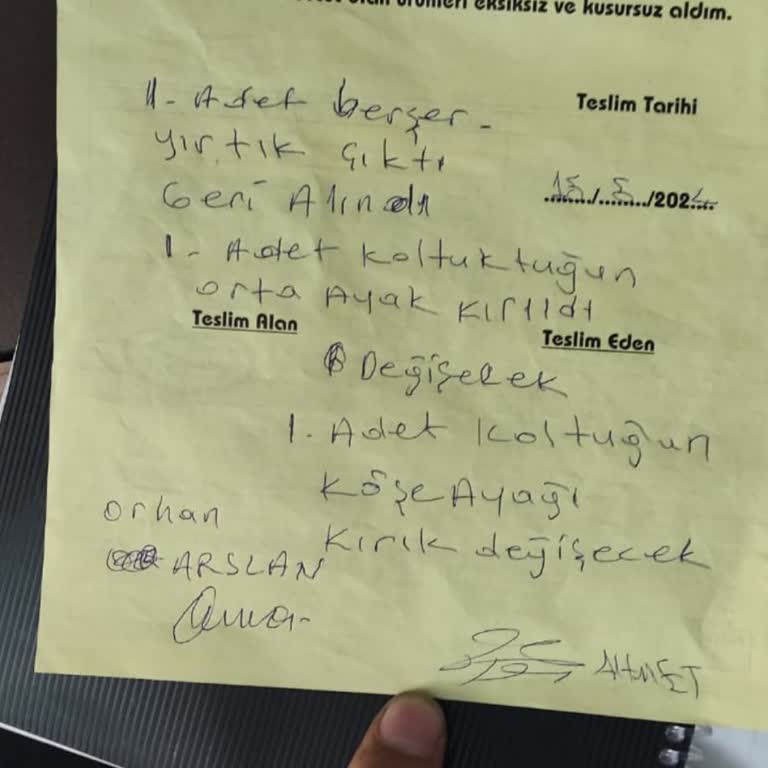 ürünleri eksiksiz ve kusursuz aldım.
1- Adet berşer -
Teslim Tarihi
yırtık çıktı
Geri Alındı
15/5/2024
1- Adet koltuktuğun
orta Ayak kırıldı
Teslim Alan
Teslim Eden
Değişecek
1. Adet koltuğun
köşe Ayağı
orhan
kırık değişecek
ARSLAN
AHMET